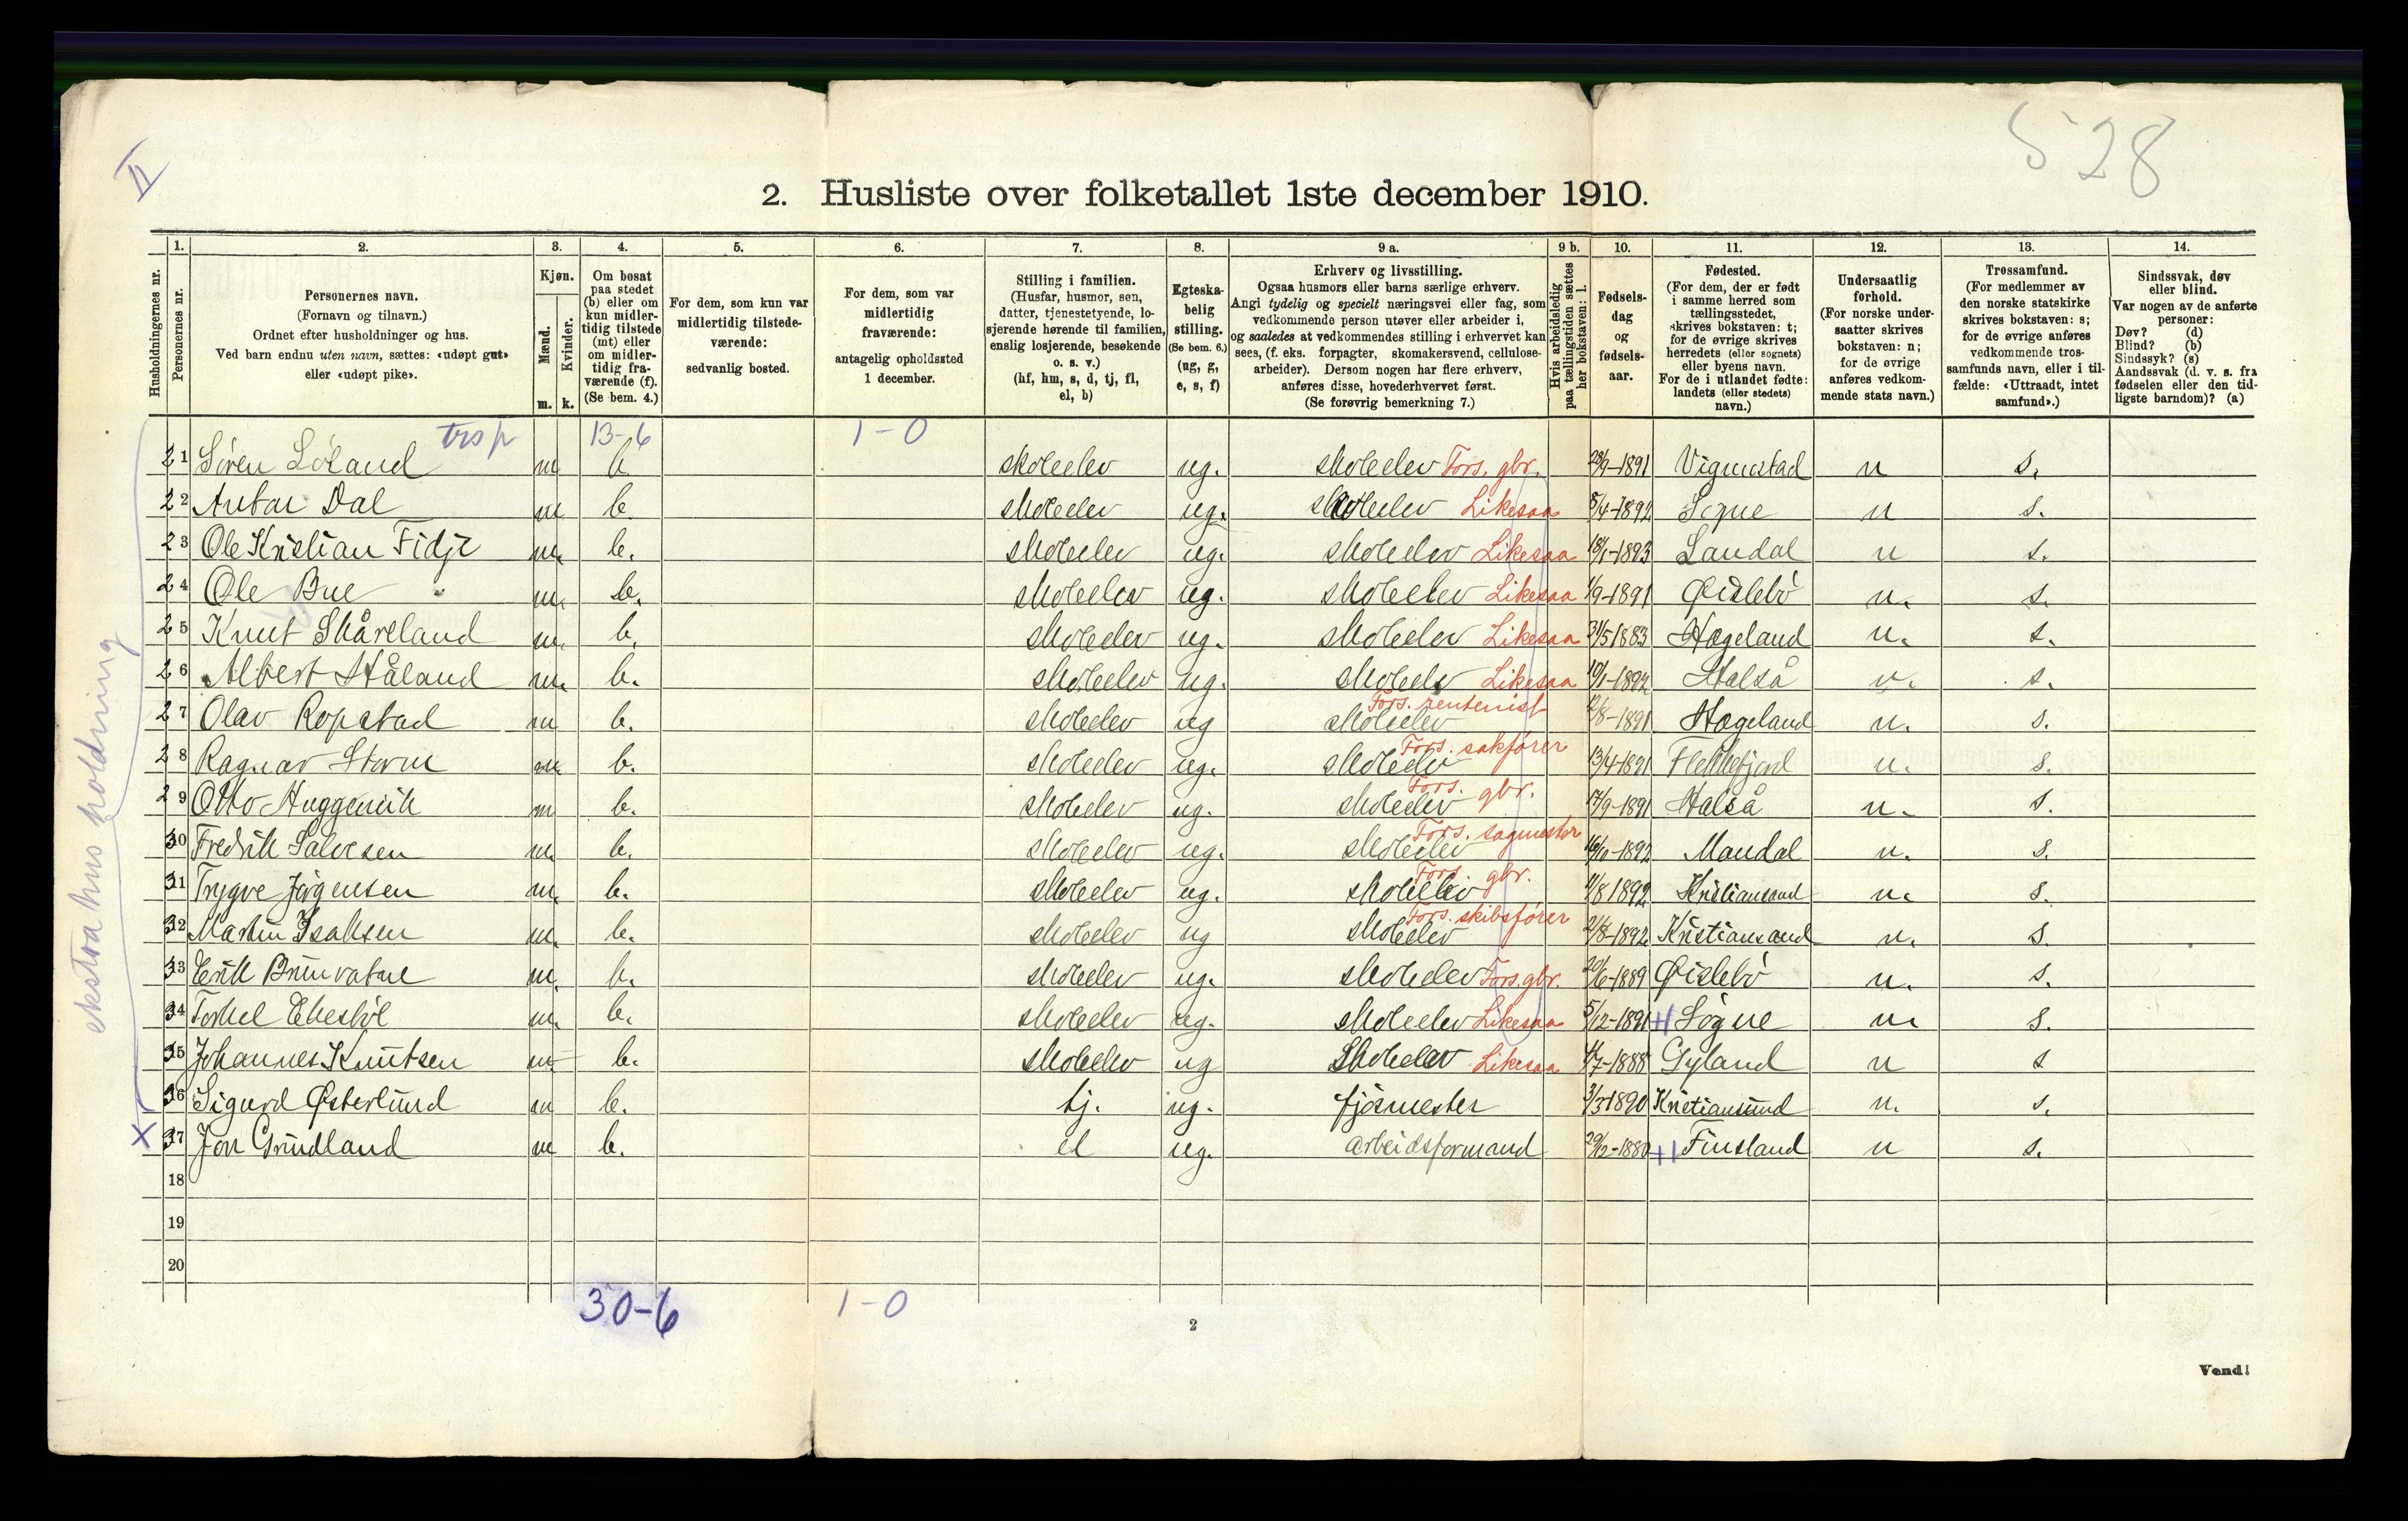 II
528
2. Husliste over folketallet 1ste december 1910.
Husholdningernes nr.
1. Personernes nr.
2. Personernes navn. (Fornavn og tilnavn.) Ordnet efter husholdninger og hus. Ved barn endnu uten navn, sættes: «udøpt gut» eller «udøpt pike».
3. Kjøn. Mænd. m. Kvinder. k.
4. Om bosat paa stedet (b) eller om kun midlertidig tilstede (mt) eller om midlertidig fraværende (f). (Se bem. 4.)
5. For dem, som kun var midlertidig tilstedeværende: sedvanlig bosted.
6. For dem, som var midlertidig fraværende: antagelig opholdssted 1 december.
7. Stilling i familien. (Husfar, husmor, søn, datter, tjenestetyende, losjerende hørende til familien, enslig losjerende, besøkende o. s. v.) (hf, hm, s, d, tj, fl, el, b)
8. Egteskabelig stilling. (Se bem. 6.) (ug, g, e, s, f)
9 a. Erhverv og livsstilling. Ogsaa husmors eller barns særlige erhverv. Angi tydelig og specielt næringsvei eller fag, som vedkommende person utøver eller arbeider i, og saaledes at vedkommendes stilling i erhvervet kan sees, (f. eks. forpagter, skomakersvend, cellulosearbeider). Dersom nogen har flere erhverv, anføres disse, hovederhvervet først. (Se forøvrig bemerkning 7.)
9 b. Hvis arbeidsledig paa tællingstiden sættes her bokstaven: l.
10. Fødselsdag og fødselsaar.
11. Fødested. (For dem, der er født i samme herred som tællingsstedet, skrives bokstaven: t; for de øvrige skrives herredets (eller sognets) eller byens navn. For de i utlandet fødte: landets (eller stedets) navn.)
12. Undersaatlig forhold. (For norske undersaatter skrives bokstaven: n; for de øvrige anføres vedkommende stats navn.)
13. Trossamfund. (For medlemmer av den norske statskirke skrives bokstaven: s; for de øvrige anføres vedkommende trossamfunds navn, eller i tilfælde: «Uttraadt, intet samfund».)
14. Sindssvak, døv eller blind. Var nogen av de anførte personer: Døv? (d) Blind? (b) Sindssyk? (s) Aandssvak (d. v. s. fra fødselen eller den tidligste barndom)? (a)
trsp 13-6 1-0
21 Søren Løland m b skoleelev ug. skoleelev Fors. gbr. 28/9-1891 Vigmostad n s.
22 Anton Dal m b. skoleelev ug. skoleelev Likesaa 8/4-1892 Sogne n s.
23 Ole Kristian Fidje m. b. skoleelev ug. skoleelev Likesaa 18/1-1893 Laudal n s.
24 Ole Bue m. b. skoleelev ug. skoleelev Likesaa 1/9-1891 Øislebö n. s.
25 Knut Skåreland m. b. skoleelev ug. skoleelev Likesaa 31/5 1883 Hægeland n. s.
26 Albert Håland m. b. skoleelev ug. skoleelev Likesaa 10/1-1892 Halså n. s.
27 Olav Ropstad m b. skoleelev ug skoleelev Fors. rentenist 12/8-1891 Hægeland n. s.
28 Ragnar Storm m b. skoleelev ug. skoleelev Fors. sakfører 13/4-1891 Flekkefjord n. s.
29 Otto Huggenvik m b. skoleelev ug. skoleelev Fors. gbr. 17/9-1891 Halså n. s.
30 Fredrik Salvesen m. b. skoleelev ug. skoleelev Fors. sagmester 16/10-1892 Mandal n. s.
31 Trygve Jørgensen m. b. skoleelev ug. skoleelev Fors. gbr. 11/8 1892 Kristiansand n. s.
32 Martin Isaksen m. b. skoleelev ug skoleelev Fors. skibsfører 21/8-1892 Kristiansand n. s.
33 Erik Brunvatne m. b. skoleelev ug. skoleelev Fors. gbr. 20/6-1889 Øislebö n. s.
34 Torkel Ekesböl m. b. skoleelev ug. skoleelev Likesaa 5/12-1891 +1 Søgne n. s.
35 Johannes Knutsen m b. skoleelev ug skoleelev Likesaa 4/7-1888 Gyland n s
36 Sigurd Østerlund m b. tj. ug. fjösmester 3/3 1890 Kristiansund n. s.
x 37 Jon Grundland m b. el ug. arbeidsformand 29/2-1880 +1 Finsland n s.
18
19
20
ekstra hus holdning
30-6 1-0
2
Vend!